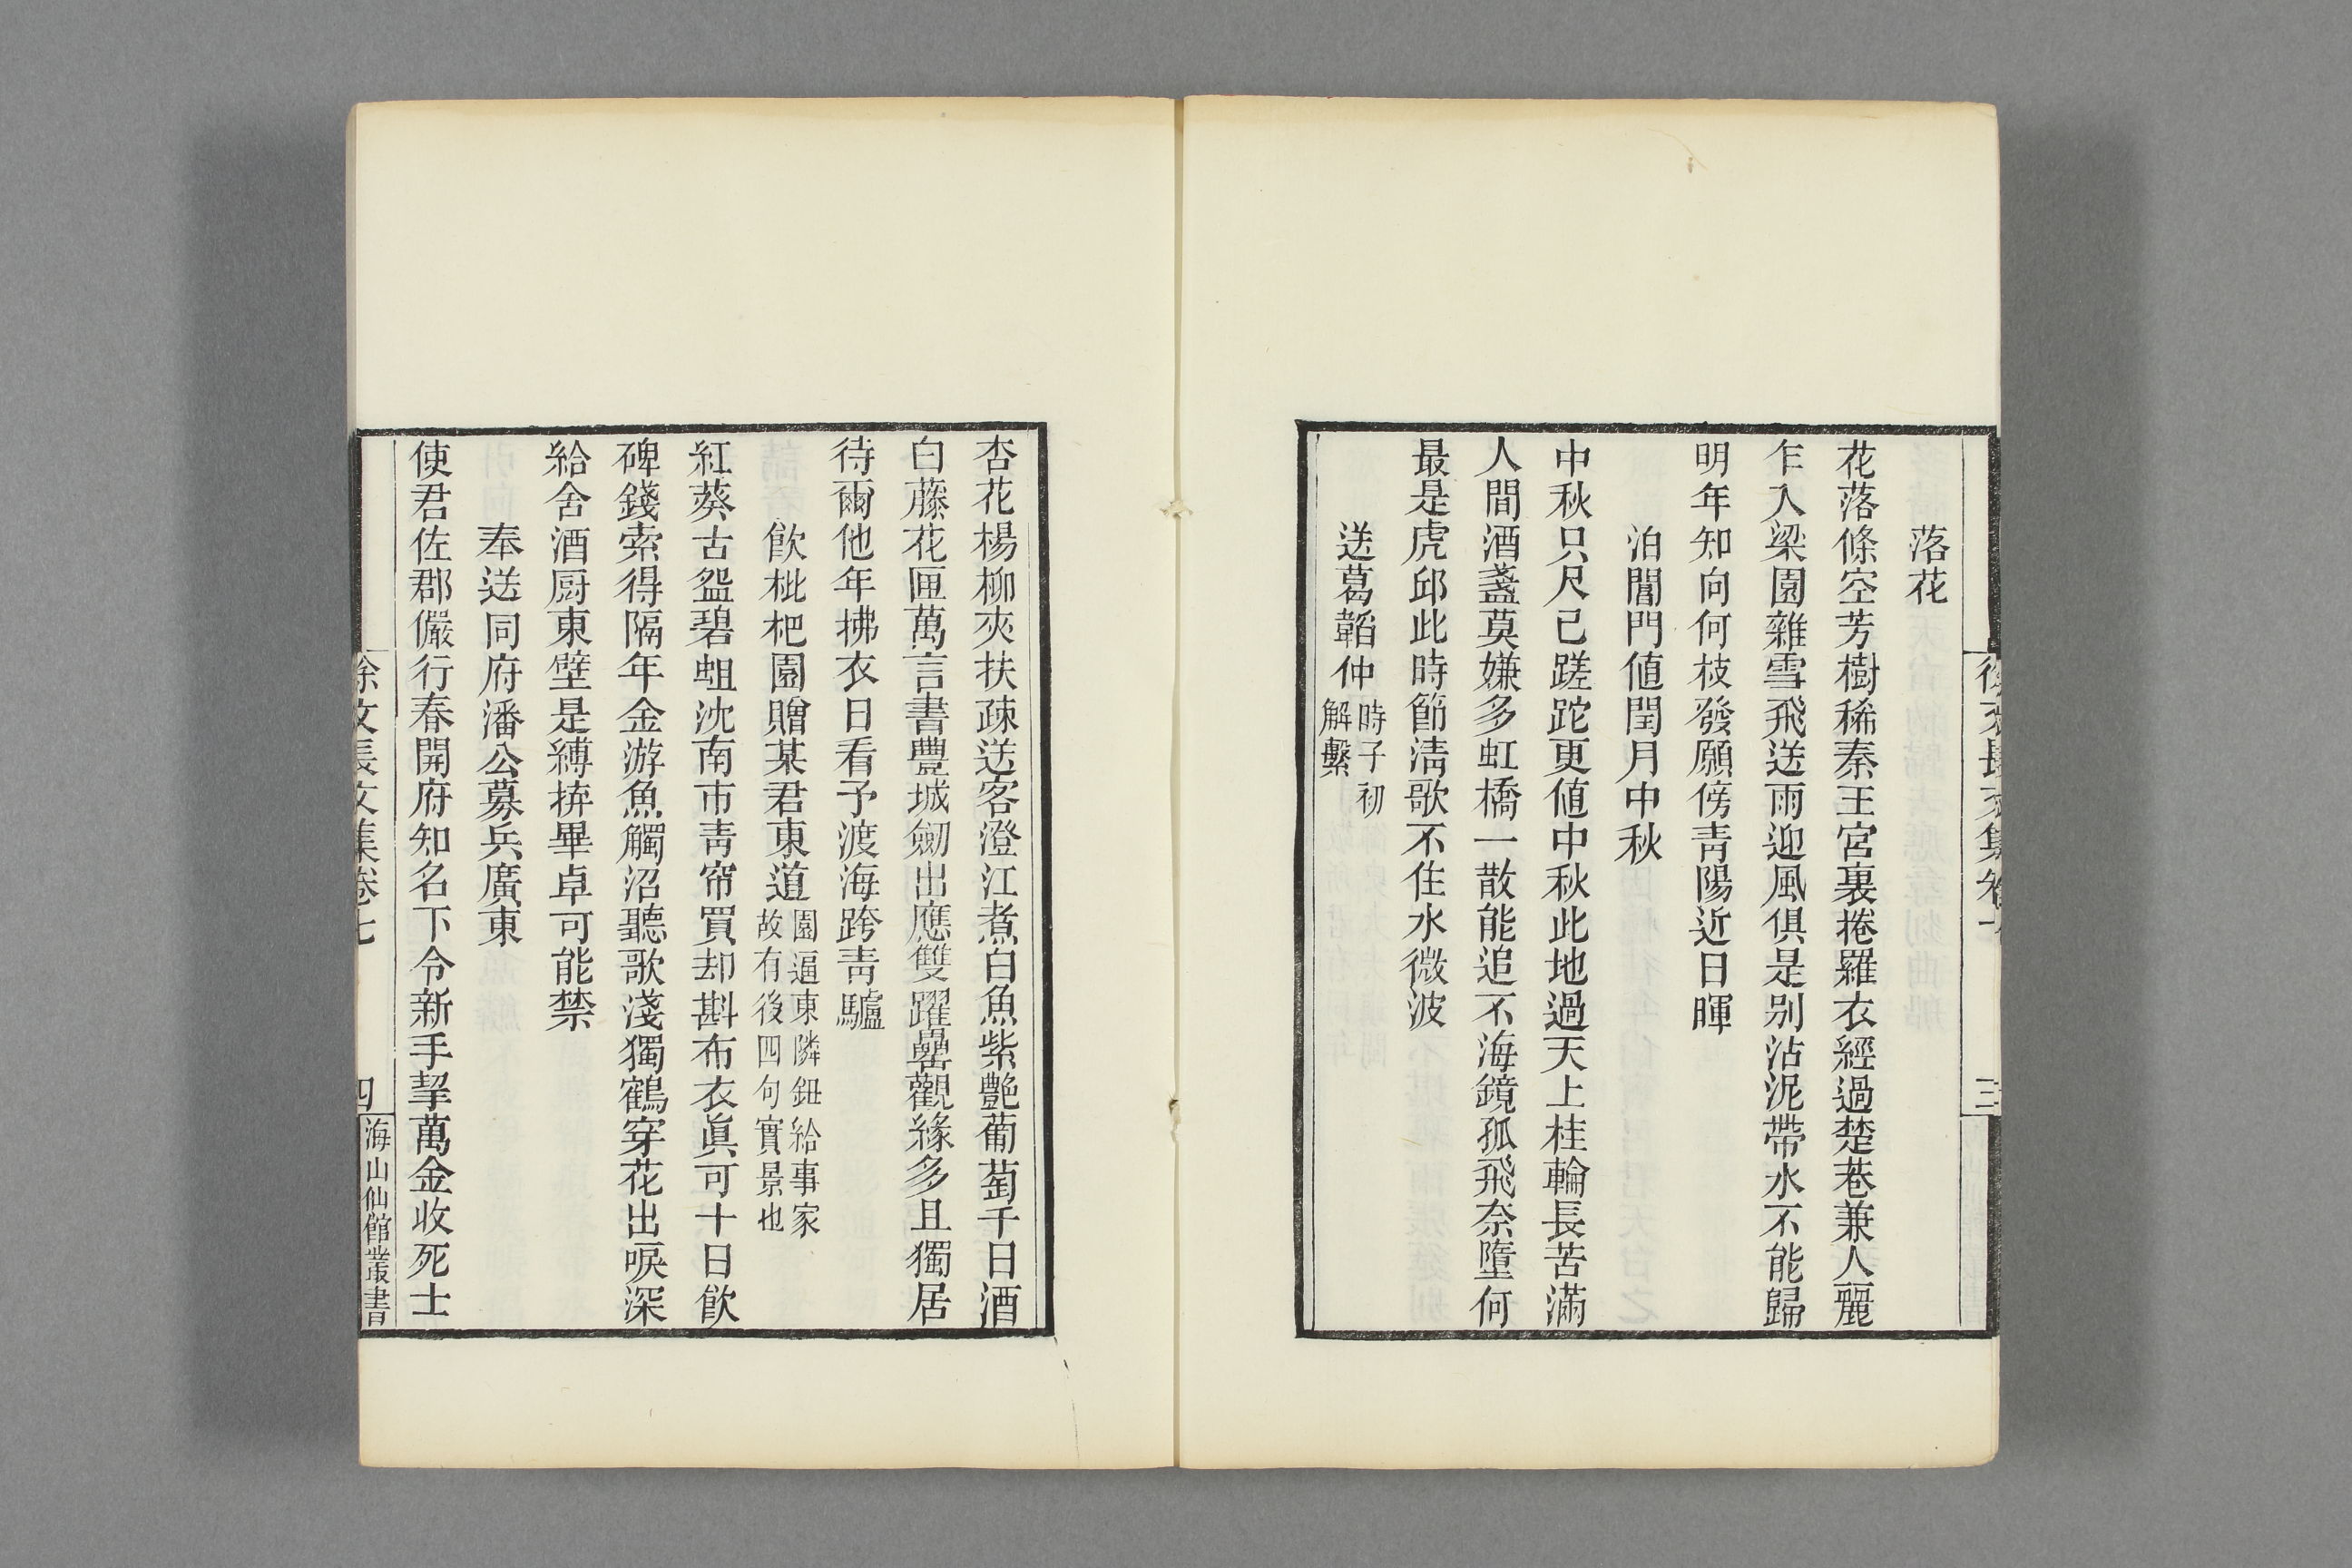 落花
花落條空芳樹稀秦王宮裏捲羅衣經過楚巷兼人麗
乍入梁園雜雪飛送雨迎風俱是別沾泥帶水不能歸
明年知向何枝發願傍靑陽近日暉
泊閶門値閏月中秋
中秋只尺已蹉跎更値中秋此地過天上桂輪長苦滿
人間酒盞莫嫌多虹橋一散能追不海鏡孤飛奈墮何
最是虎邱此時節淸歌不住水微波
送葛韜仲時子初
解繫
徐文長文集卷七
三
杏花楊柳夾扶疎送客澄江煮白魚紫艷葡萄千日酒
白藤花匣萬言書豐城劒出應雙躍罍觀緣多且獨居
待爾他年拂衣日看予渡海跨靑驢
飮枇杷園贈某君東道園逼東隣鈕給事家
故有後四句實景也
紅葵古盌碧蛆沈南市靑帘買却斟布衣眞可十日飮
碑錢索得隔年金游魚觸沼聽歌淺獨鶴穿花出唳深
給舍酒厨東壁是縛拚畢卓可能禁
奉送同府潘公募兵廣東
使君佐郡儼行春開府知名下令新手挈萬金收死士
徐文長文集卷七
四
海山仙館叢書